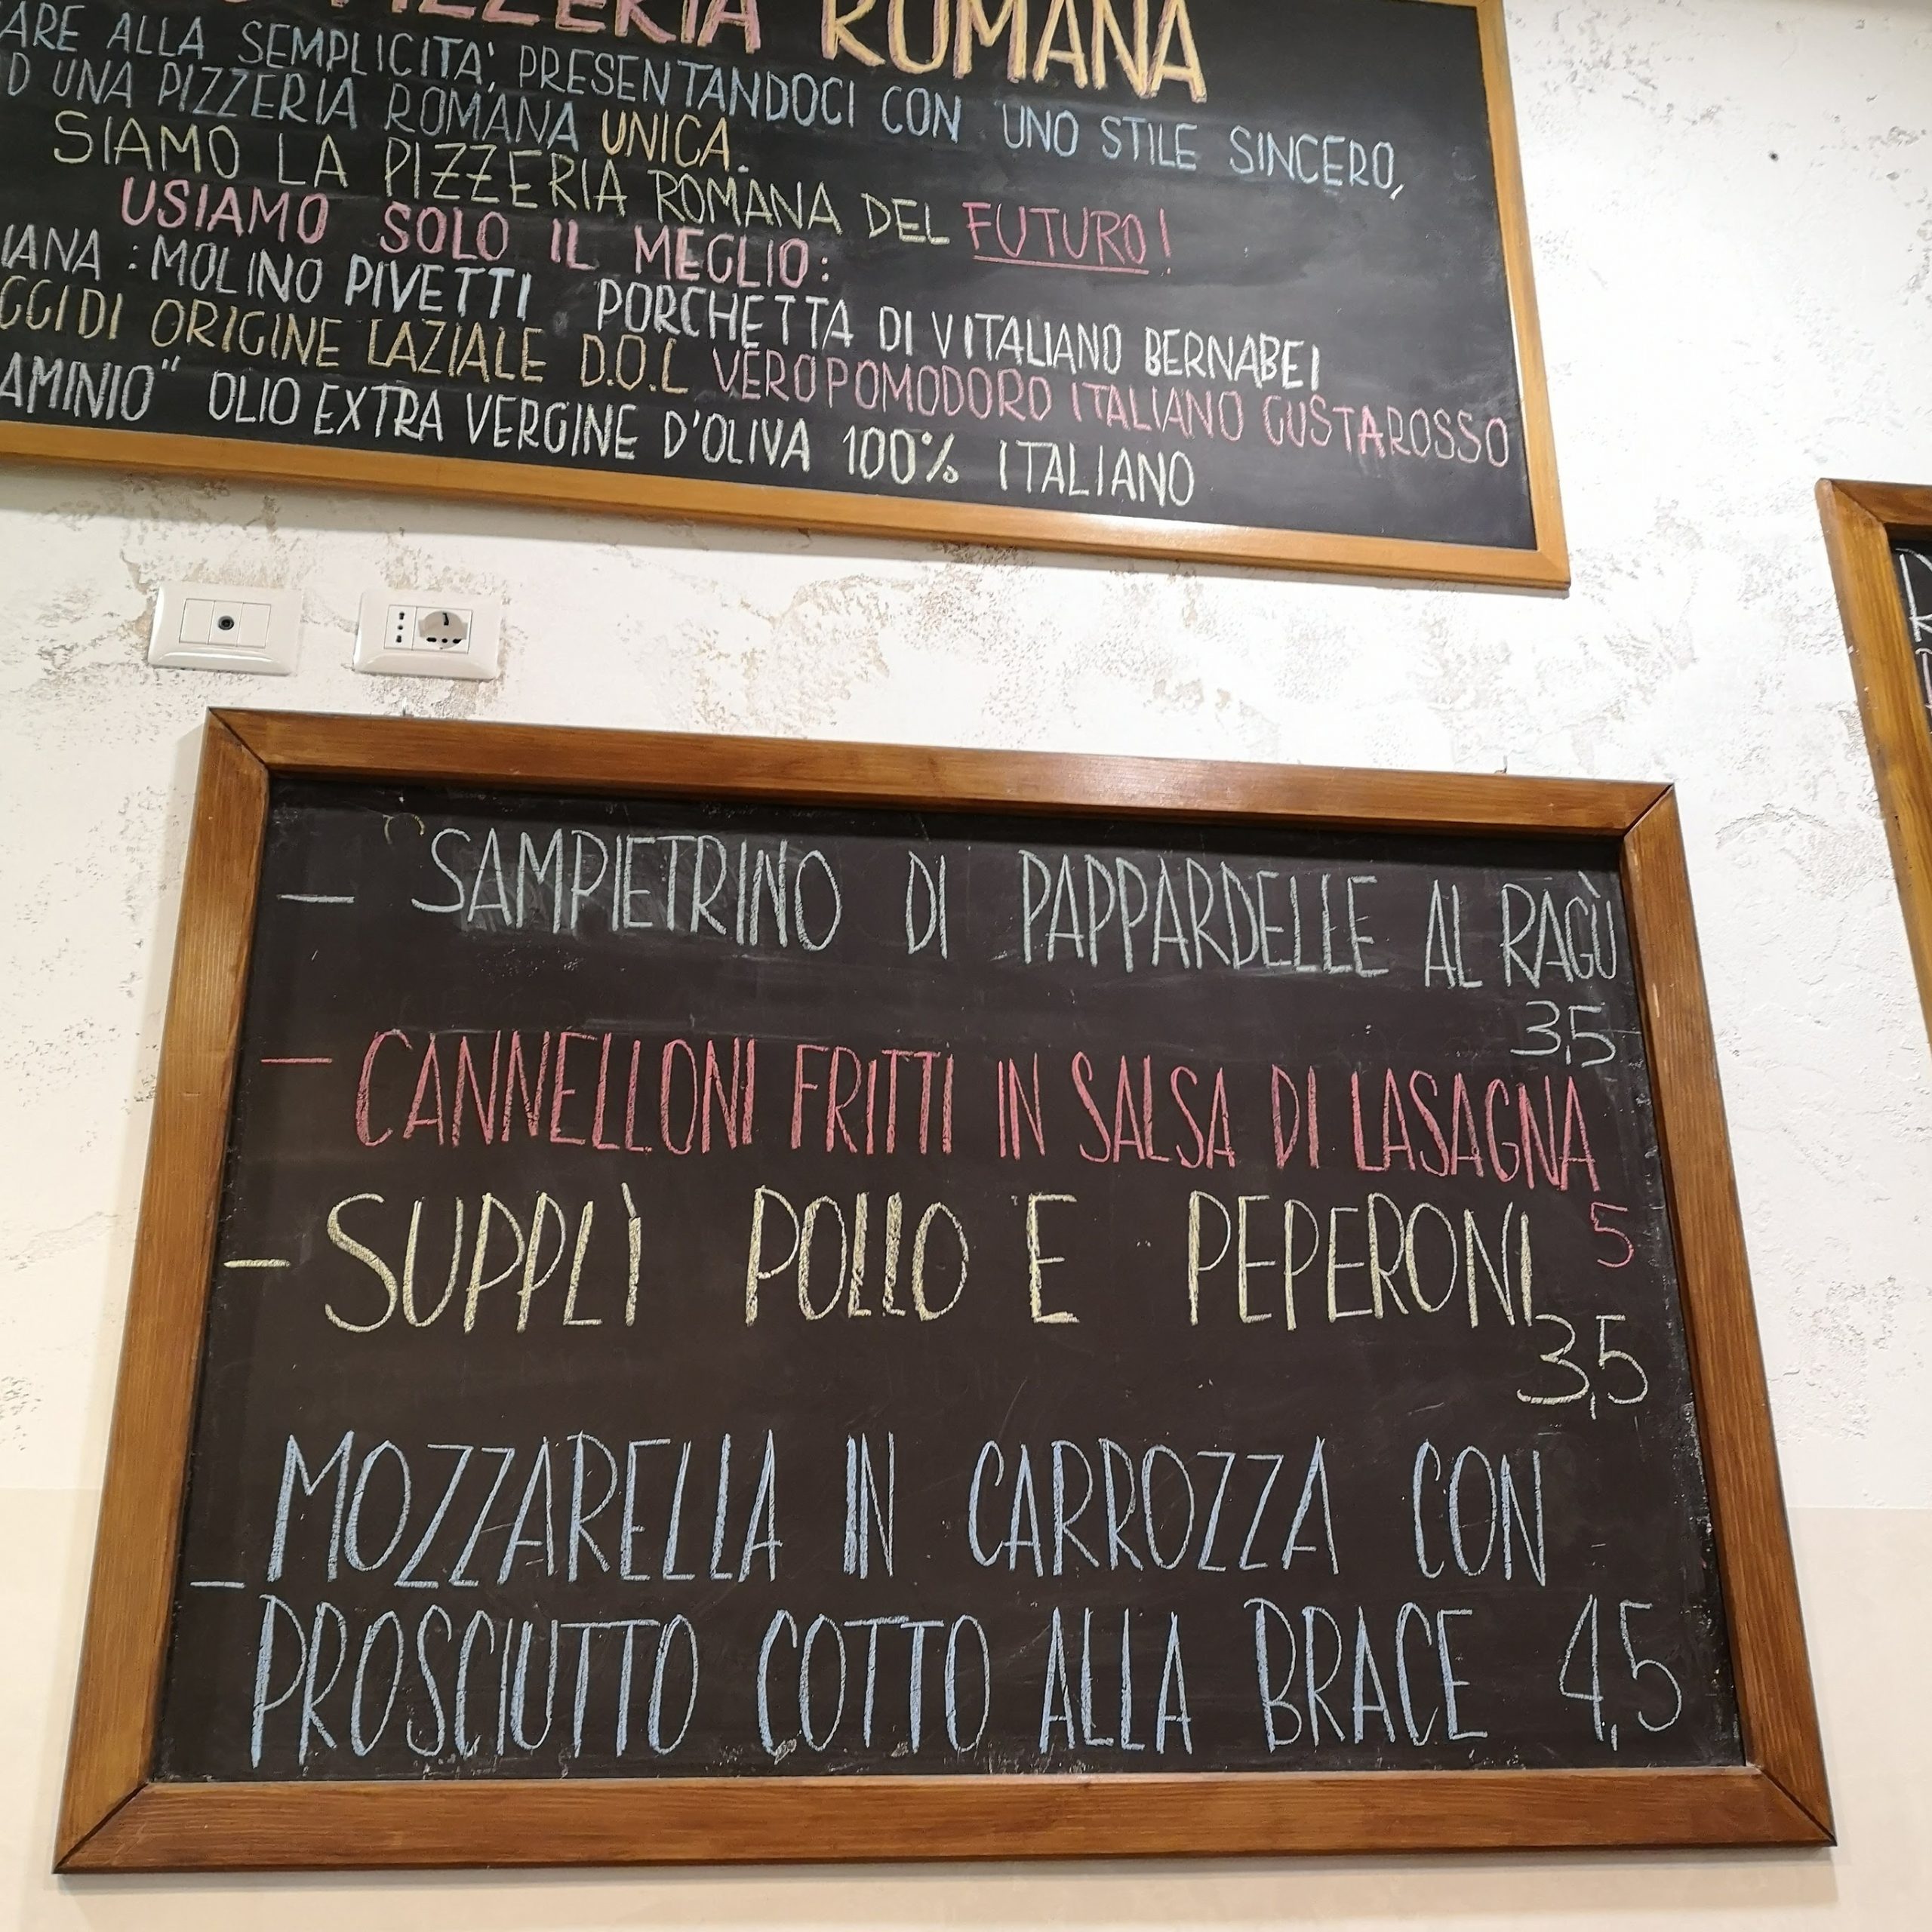 PIZZERIA ROMANA
ARE ALLA SEMPLICITA', PRESENTANDOCI CON UNO STILE SINCERO,
D UNA PIZZERIA ROMANA UNICA.
SIAMO LA PIZZERIA ROMANA DEL FUTURO!
USIAMO SOLO IL MEGLIO:
IANA : MOLINO PIVETTI PORCHETTA DI VITALIANO BERNABEI
GGI DI ORIGINE LAZIALE D.O.L VERO POMODORO ITALIANO GUSTAROSSO
AMINIO" OLIO EXTRA VERGINE D'OLIVA 100% ITALIANO
— SAMPIETRINO DI PAPPARDELLE AL RAGÙ
3,5
— CANNELLONI FRITTI IN SALSA DI LASAGNA
5
— SUPPLÌ POLLO E PEPERONI
3,5
MOZZARELLA IN CARROZZA CON
— PROSCIUTTO COTTO ALLA BRACE 4,5